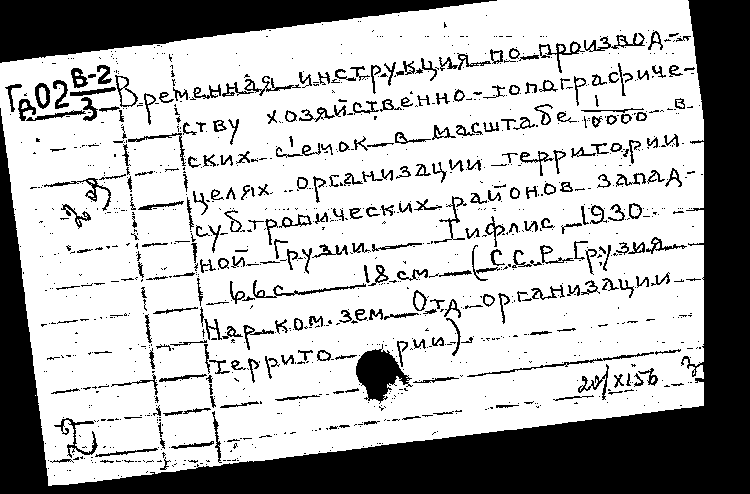 Гд02 В-2/3
Временная инструкция по производ-
ству хозяйственно-топографиче-
ских с'емок в масштабе 1/10000 в
целях организации территории
субтропических районов Запад-
ной Грузии. Тифлис, 1930.
66 с. 18 см (С.С.Р. Грузия
Нар. ком. зем. Отд организации
террито рии).
20/X156